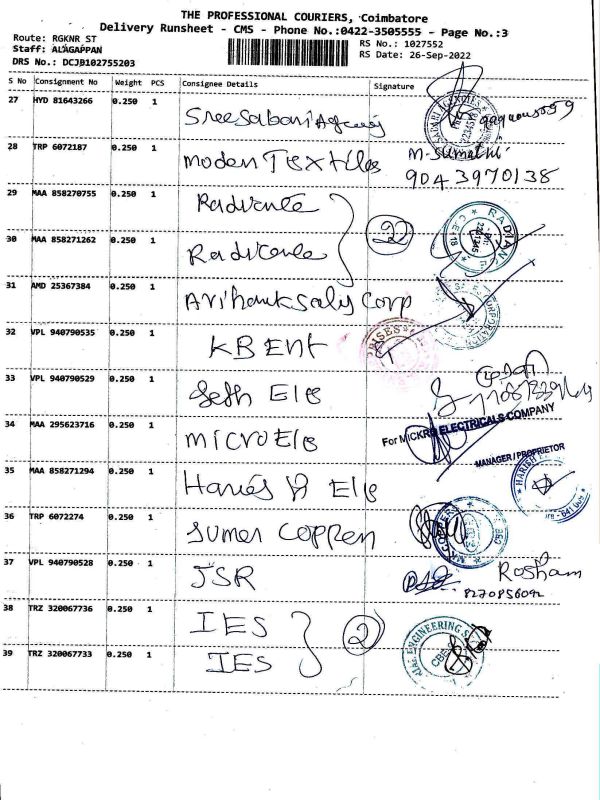 THE PROFESSIONAL COURIERS, Coimbatore
Delivery Runsheet - CMS - Phone No.:0422-3505555 - Page No.:3
Route: RGKNR ST
RS No.: 1027552
Staff: ALAGAPPAN
RS Date: 26-Sep-2022
DRS No.: DCJB102755203
S No Consignment No Weight PCS Consignee Details Signature
27 HYD 81643266 0.250 1 SreeSabari Agency
28 TRP 6072187 0.250 1 Moden Textiles M. Sumathi
9043970138
29 MAA 858270755 0.250 1 Radiante
22
30 MAA 858271262 0.250 1 Radiante
31 AMD 25367384 0.250 1 Arihantsaly Corp
32 VPL 940790535 0.250 1 KB Ent
33 VPL 940790529 0.250 1 Seth Ele
34 MAA 295623716 0.250 1 Micro Ele
For MICKRO ELECTRICALS COMPANY
MANAGER / PROPRIETOR
35 MAA 858271294 0.250 1 Ele
36 TRP 6072274 0.250 1 Sumer Coppen
37 VPL 940790528 0.250 1 JSR Rosham
8270856092
38 TRZ 320067736 0.250 1 IES
2
39 TRZ 320067733 0.250 1 IES